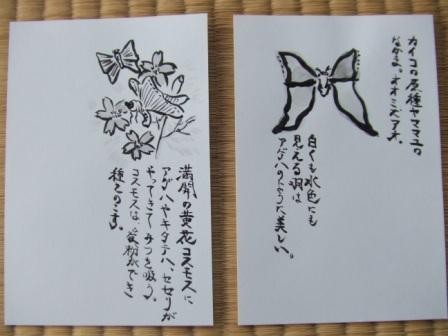 満開の黄花コスモスに
アゲハやキタテハ、セセリが
やってきてみつを吸う。
コスモスは受粉ができ
種をのこす。
カイコの原種ヤママユの
なかま。オオミズアオ。
白くも水色にも
見える羽は
アゲハのようで美しい。